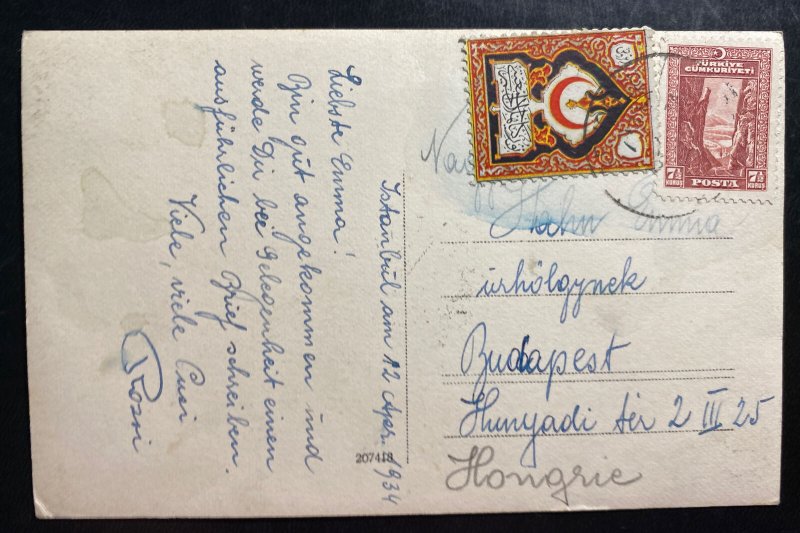 Istanbul am 12 Apr. 1934
Liebste Emma!
Bin gut angekommen und
werde Dir bei Gelegenheit einen
ausführlichen Brief schreiben.
Viele, viele Cusi
Rosni
207418
TÜRKİYE
CUMHURİYETİ
7½ 7½
KURUŞ POSTA KURUŞ
١
Nagy
Hahn Emma
úrhölgynek
Budapest
Hunyadi tér 2 III 25
Hongrie